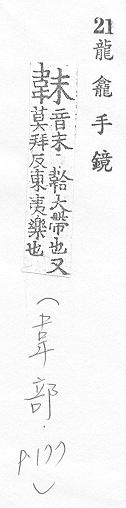 21 龍龕手鏡
韎音末韐大帶也又
莫拜反東夷樂也
(韋部. P.177)